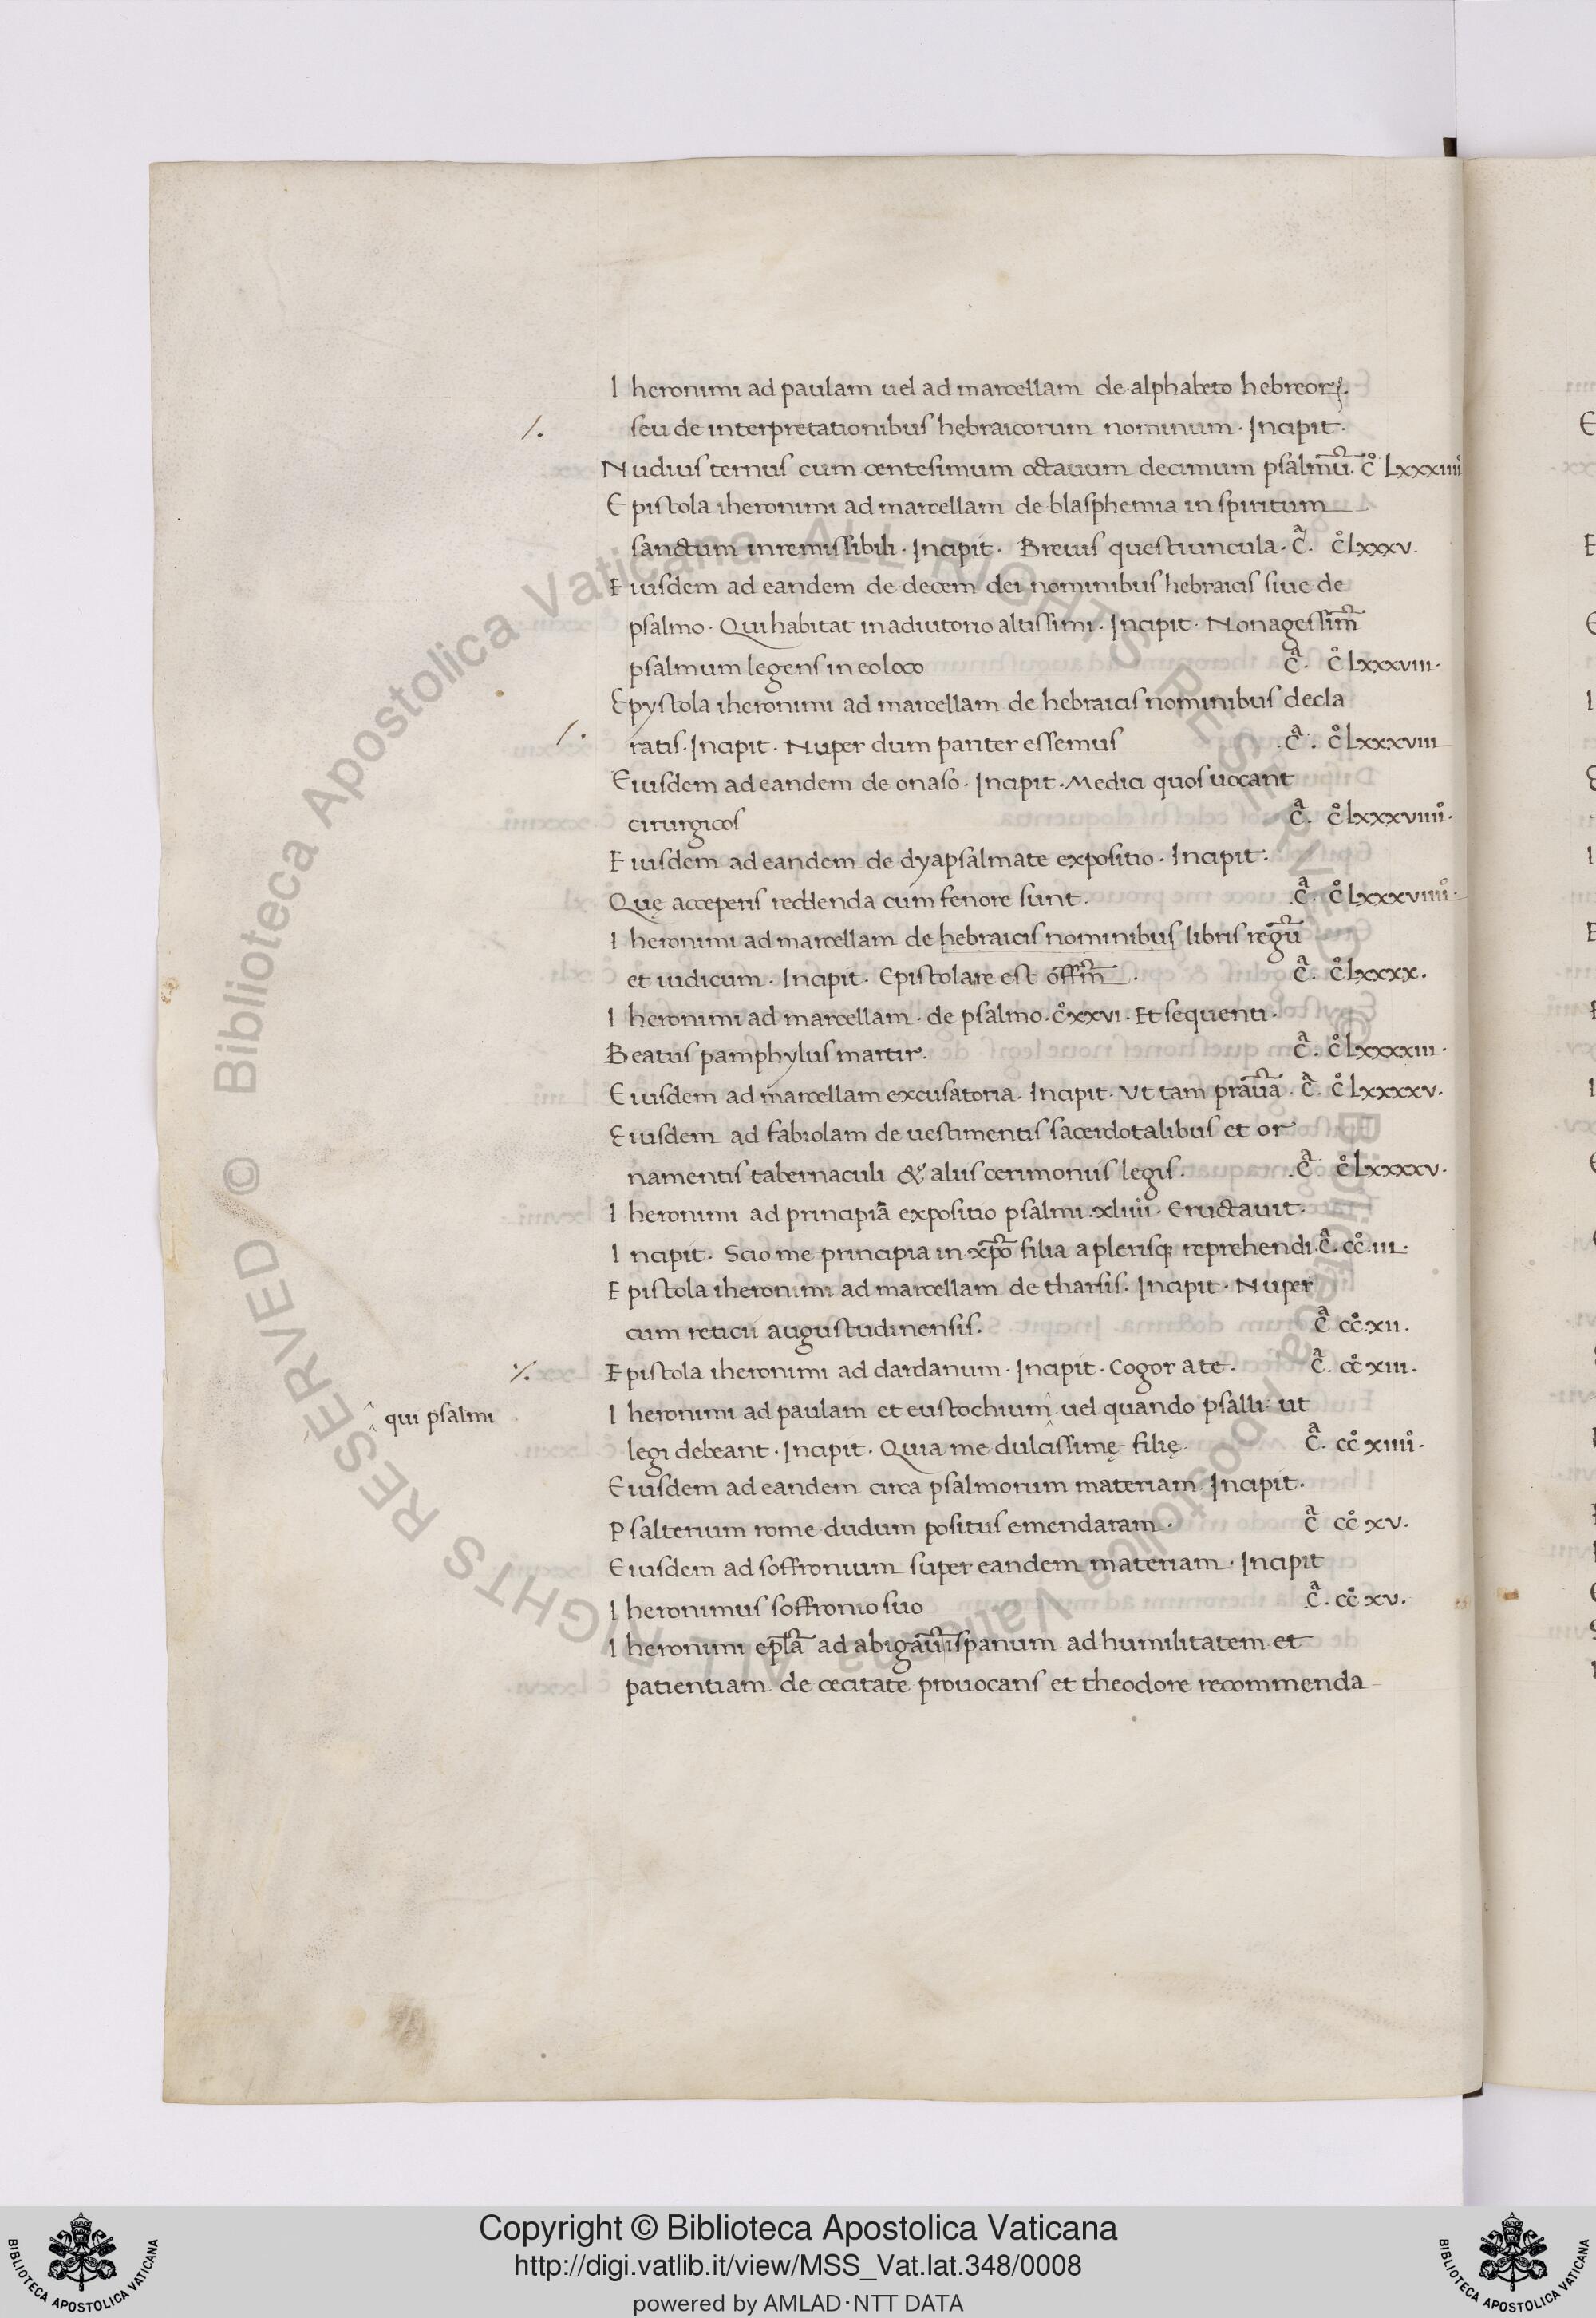 Iheronimi ad paulam uel ad marcellam de alphabeto hebreorꝝ
/. seu de interpretationibus hebraicorum nominum · Incipit ·
Nudius tertius cum centesimum octauum decimum psalmū. c̊ Lxxxiiii̊
Epistola iheronimi ad marcellam de blasphemia in spiritum
sanctum inremissibili · Incipit · Breuis questiuncula · Cͣ. c̊ Lxxxv.
Eiusdem ad eandem de decem dei nominibus hebraicis siue de
psalmo · Qui habitat in adiutorio altissimi · Incipit · Nonagessim̄
psalmum legens in eo loco Cͣ. c̊ Lxxxviii·
Epystola iheronimi ad marcellam de hebraicis nominibus decla
/. ratis · Incipit · Nuper dum pariter essemus .Cͣ. c̊ Lxxxviii
Eiusdem ad eandem de onaso · Incipit · Medici quos uocant
cirurgicos Cͣ. c̊ Lxxxviiii̊·
Eiusdem ad eandem de dyapsalmate expositio · Incipit ·
Quę acceperis reddenda cum fenore sunt. .Cͣ. c̊ Lxxxviiii̊·
Iheronimi ad marcellam de hebraicis nominibus libris regū
et iudicum · Incipit · Epistolare est off̄m̄ · Cͣ. c̊ Lxxxx.
Iheronimi ad marcellam · de psalmo · c̊xxvi · Et sequenti ·
Beatus pamphylus martir. Cͣ. c̊ Lxxxxiii·
Eiusdem ad marcellam excusatoria · Incipit · Ut tam prāuā · Cͣ. c̊ Lxxxxv.
Eiusdem ad fabiolam de uestimentis sacerdotalibus et or
namentis tabernaculi & aliis cerimoniis legis. .Cͣ c̊ Lxxxxv.
Iheronimi ad principiā expositio psalmi .xliiii̊ · Eructauit.
Incipit. Scio me principia in xp̄o filia a plerisq; reprehendi. Cͣ. cc̊.iii.
Epistola iheronimi ad marcellam de tharsis. Incipit · Nuper
cum reticii augustudinensis. Cͣ cc̊.xii.
·/. Epistola iheronimi ad dardanum · Incipit · Cogor a te · Cͣ. cc̊ xiii.
^ qui psalmi
Iheronimi ad paulam et eustochium ^ uel quando psalli: ut
legi debeant · Incipit · Quia me dulcissimę filię · Cͣ. cc̊ xiiii̊.
Eiusdem ad eandem circa psalmorum materiam. Incipit.
Psalterium rome dudum positus emendaram · Cͣ cc̊ xv.
Eiusdem ad soffronium super eandem materiam · Incipit
Iheronimus soffronio suo .Cͣ. cc̊ xv.
Iheronimi ep̄la ad abigāuispanum ad humilitatem et
patientiam de cecitate prouocans et theodore recommenda
© Biblioteca Apostolica Vaticana ALL RIGHTS RESERVED
© Biblioteca Apostolica Vaticana ALL RIGHTS RESERVED
Copyright © Biblioteca Apostolica Vaticana
http://digi.vatlib.it/view/MSS_Vat.lat.348/0008
powered by AMLAD·NTT DATA
BIBLIOTECA APOSTOLICA VATICANA
BIBLIOTECA APOSTOLICA VATICANA